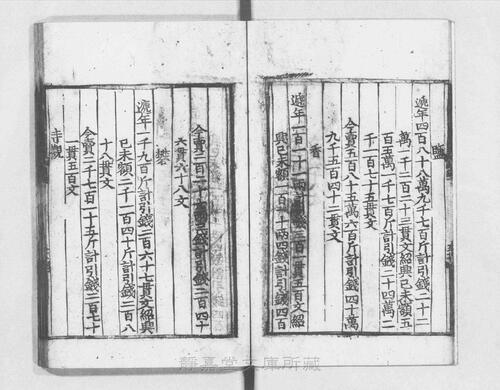 鹽
遞年四百八十八萬九千七百斤計引錢二十二
萬一千二百二十三貫文紹興己未額五
百五萬一千七百斤計引錢二十四萬二
千一百七十五貫文
今賣五百八十五萬六百斤計引錢四十萬
九千五百四十二貫文
香
遞年一百一十一兩計引錢三百一貫五百文紹
興己未額一百一十兩四錢計引錢四百
六貫六百八文
礬
遞年一千九百斤計引錢二百六十七貫文紹興
己未額二千一百四十斤計引錢二百八
十八貫文
今賣二千七百一十五斤計引錢二百七十
一貫五百文
寺觀
靜嘉堂文庫所藏